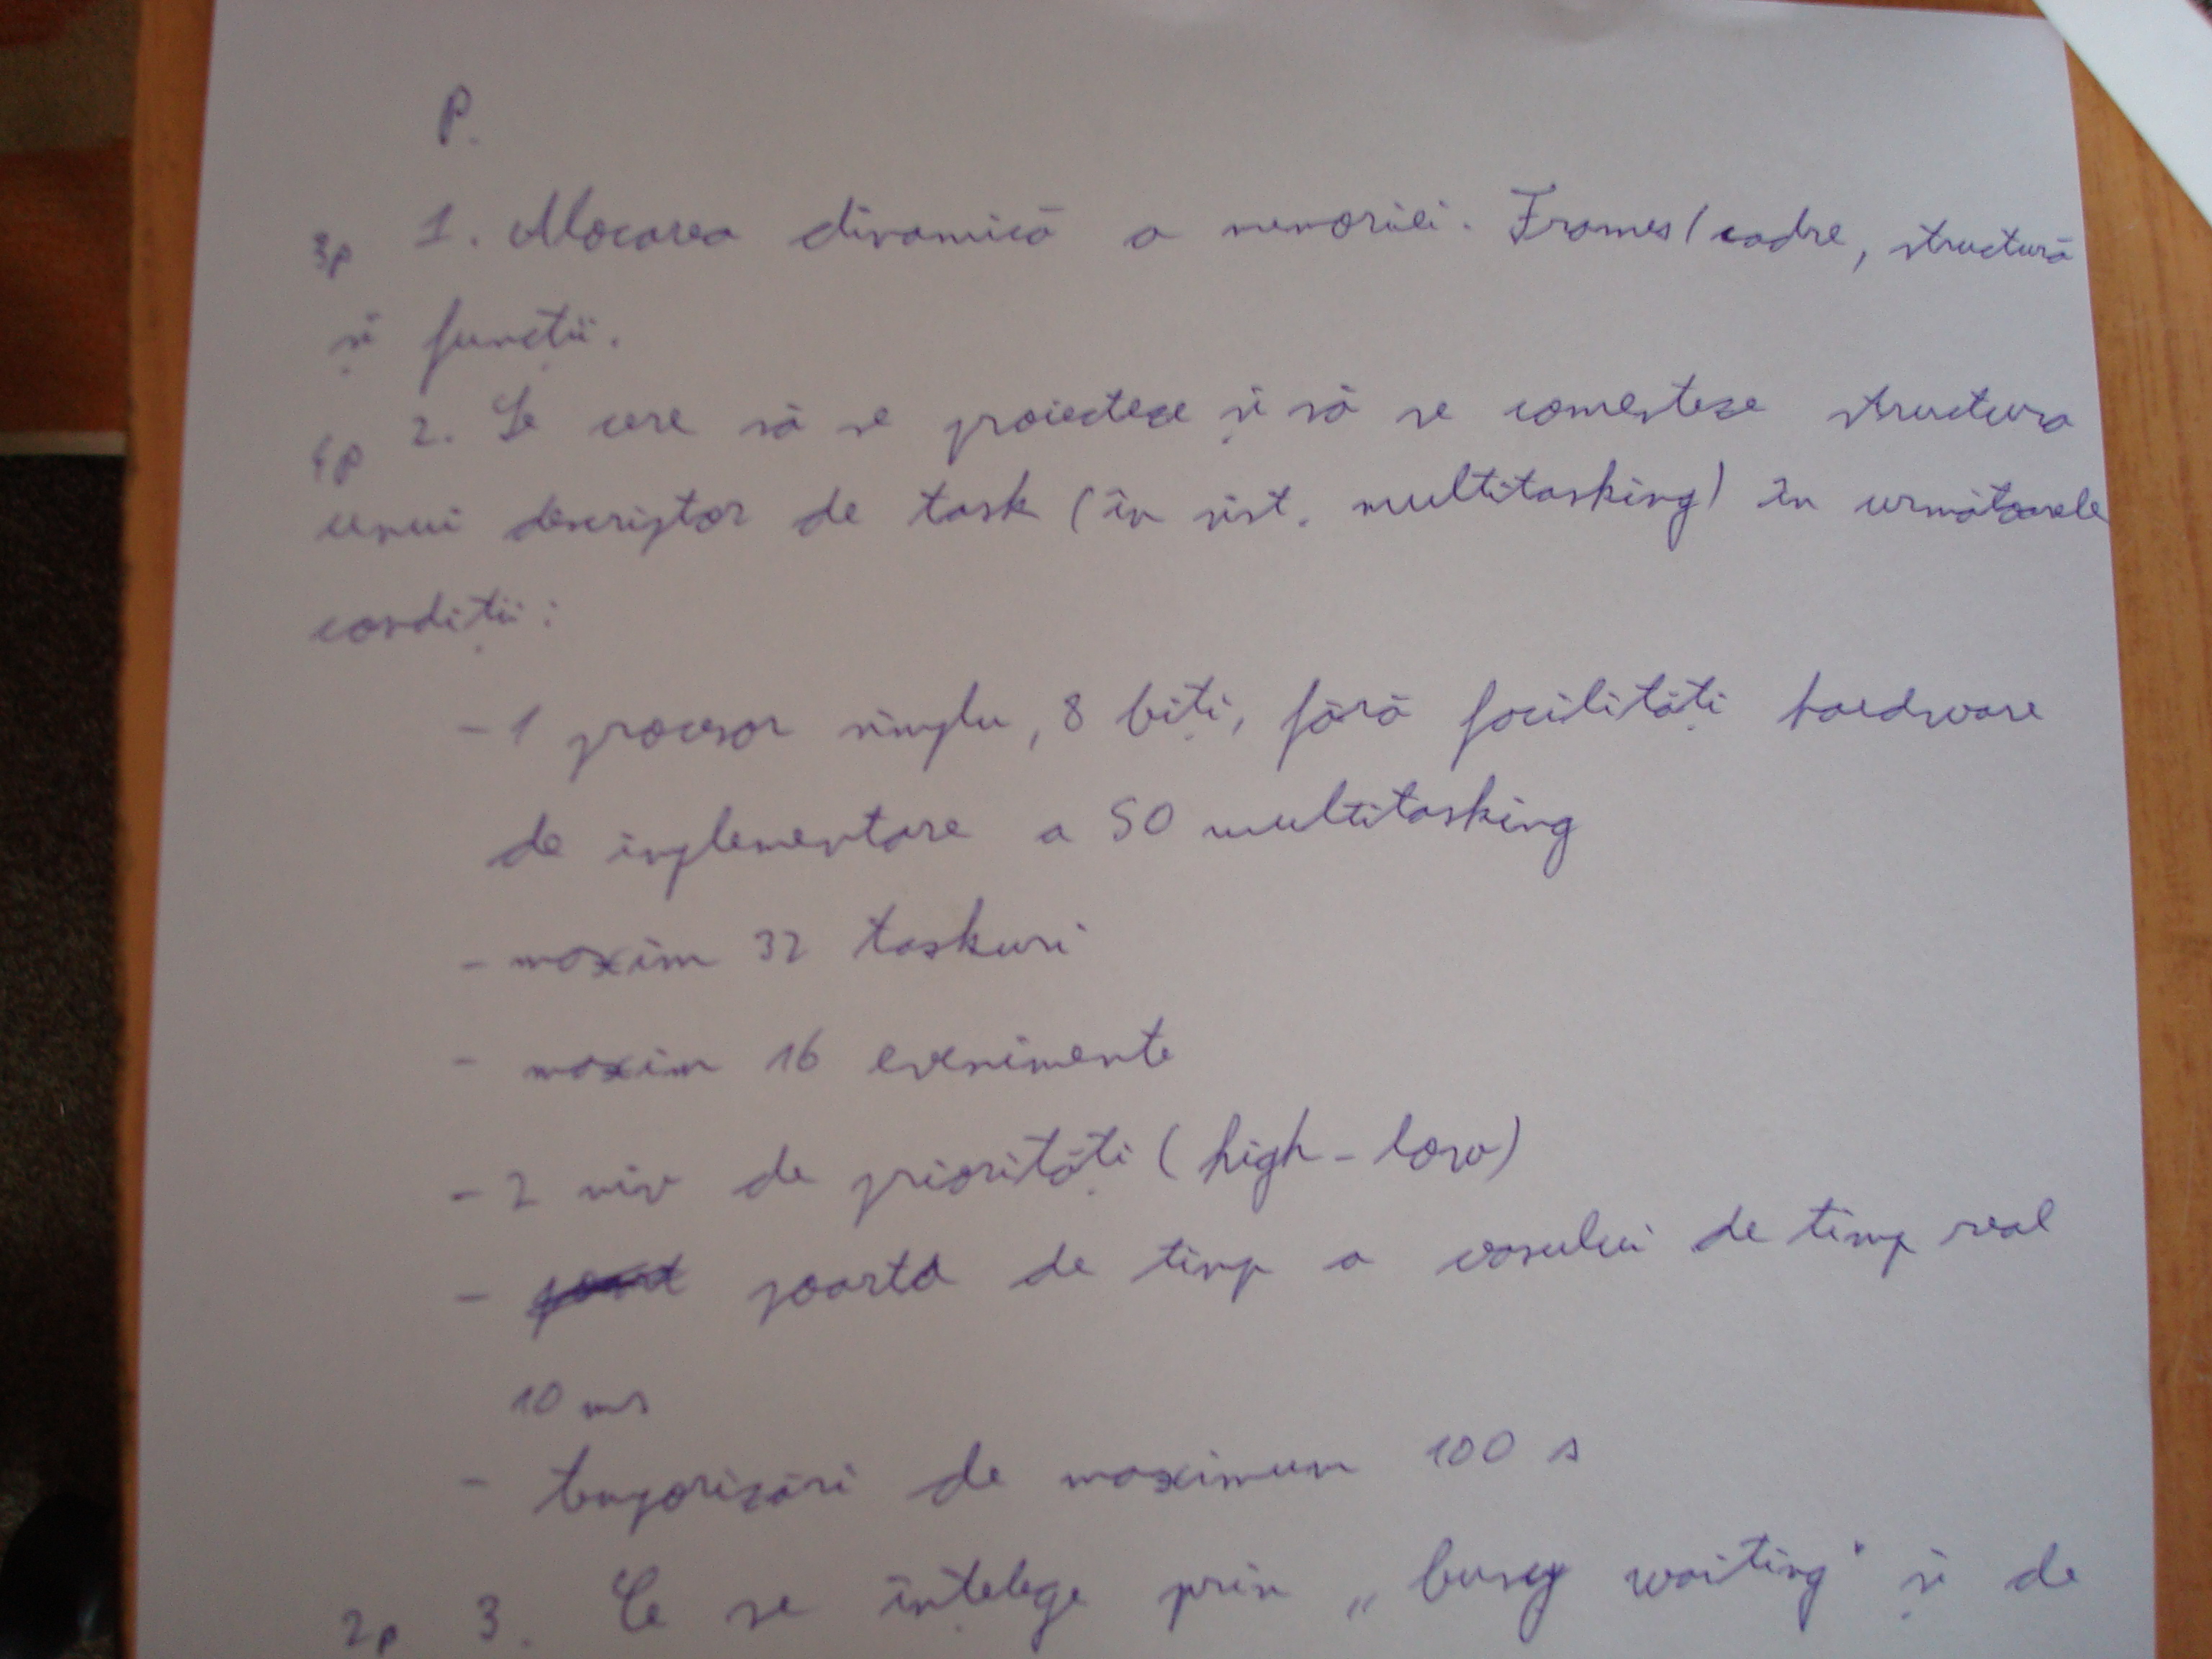 P.
3p 1. Alocarea dinamică a memoriei. Frames / cadre, structură
și funcții.
4p 2. Se cere să se proiecteze și să se comenteze structura
unui descriptor de task (în sist. multitasking) în următoarele
condiții:
- 1 procesor simplu, 8 biți, fără facilități hardware
de implementare a SO multitasking
- maxim 32 taskuri
- maxim 16 evenimente
- 2 niv de priorități (high - low)
- poarta de timp a ceasului de timp real
10 ms
- temporizări de maximum 100 s
2p 3. Ce se înțelege prin „busy waiting" și de